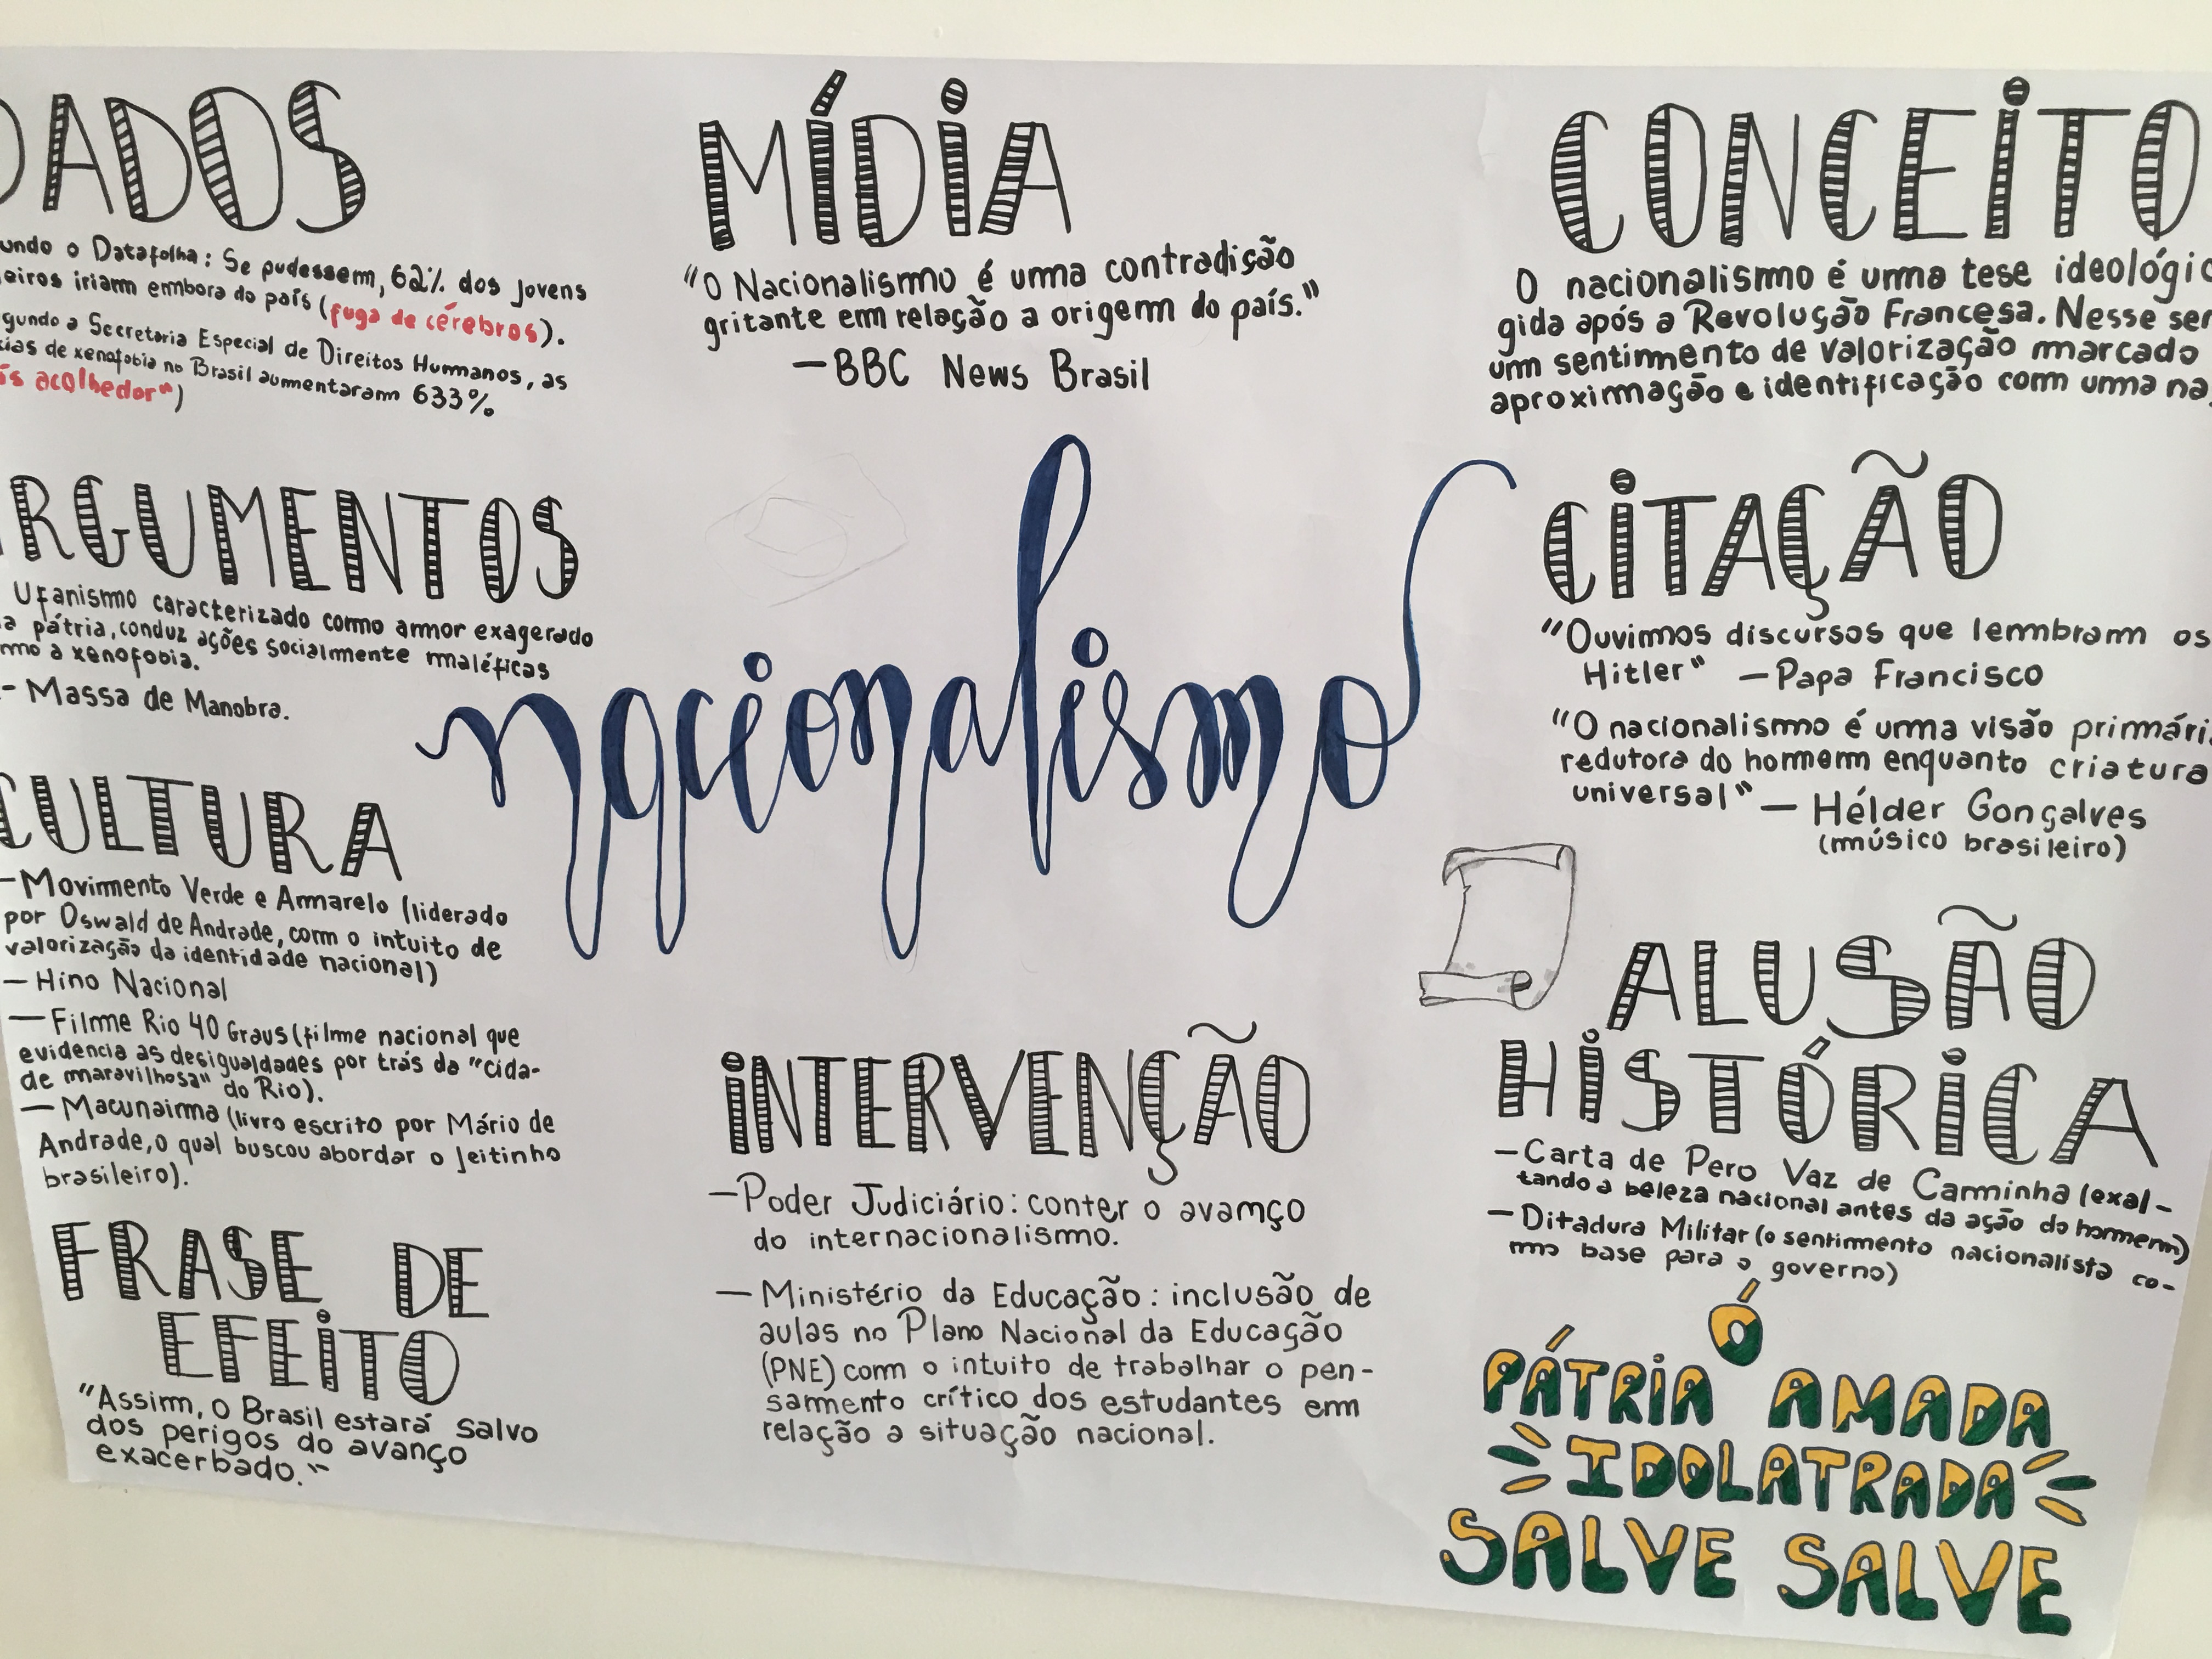 DADOS
undo o Datafolha: Se pudessem, 62% dos jovens
leiros iriam embora do país (fuga de cérebros).
gundo a Secretaria Especial de Direitos Humanos, as
cias de xenofobia no Brasil aumentaram 633%
ís acolhedor")
ARGUMENTOS
Ufanismo caracterizado como amor exagerado
a pátria, conduz ações socialmente maléficas
mo a xenofobia.
- Massa de Manobra.
CULTURA
- Movimento Verde e Amarelo (liderado
por Oswald de Andrade, com o intuito de
valorização da identidade nacional)
- Hino Nacional
- Filme Rio 40 Graus (filme nacional que
evidencia as desigualdades por trás da "cida-
de maravilhosa" do Rio).
- Macunaima (livro escrito por Mário de
Andrade, o qual buscou abordar o jeitinho
brasileiro).
FRASE DE
EFEITO
"Assim, o Brasil estará salvo
dos perigos do avanço
exacerbado."
MÍDIA
"O Nacionalismo é uma contradição
gritante em relação a origem do país."
- BBC News Brasil
nacionalismo
INTERVENÇÃO
- Poder Judiciário: conter o avamço
do internacionalismo.
- Ministério da Educação: inclusão de
aulas no Plano Nacional da Educação
(PNE) com o intuito de trabalhar o pen-
samento crítico dos estudantes em
relação a situação nacional.
CONCEITO
O nacionalismo é uma tese ideológic
gida após a Revolução Francesa. Nesse sen
um sentimento de valorização marcado
aproximação e identificação com uma na
CITAÇÃO
"Ouvimos discursos que lembram os
Hitler" - Papa Francisco
"O nacionalismo é uma visão primári
redutora do homem enquanto criatura
universal" - Hélder Gonçalves
(músico brasileiro)
ALUSÃO
HISTÓRICA
- Carta de Pero Vaz de Caminha (exal-
tando a beleza nacional antes da ação do homem)
- Ditadura Militar (o sentimento nacionalista co-
mo base para o governo)
Ó
PÁTRIA AMADA
IDOLATRADA
SALVE SALVE